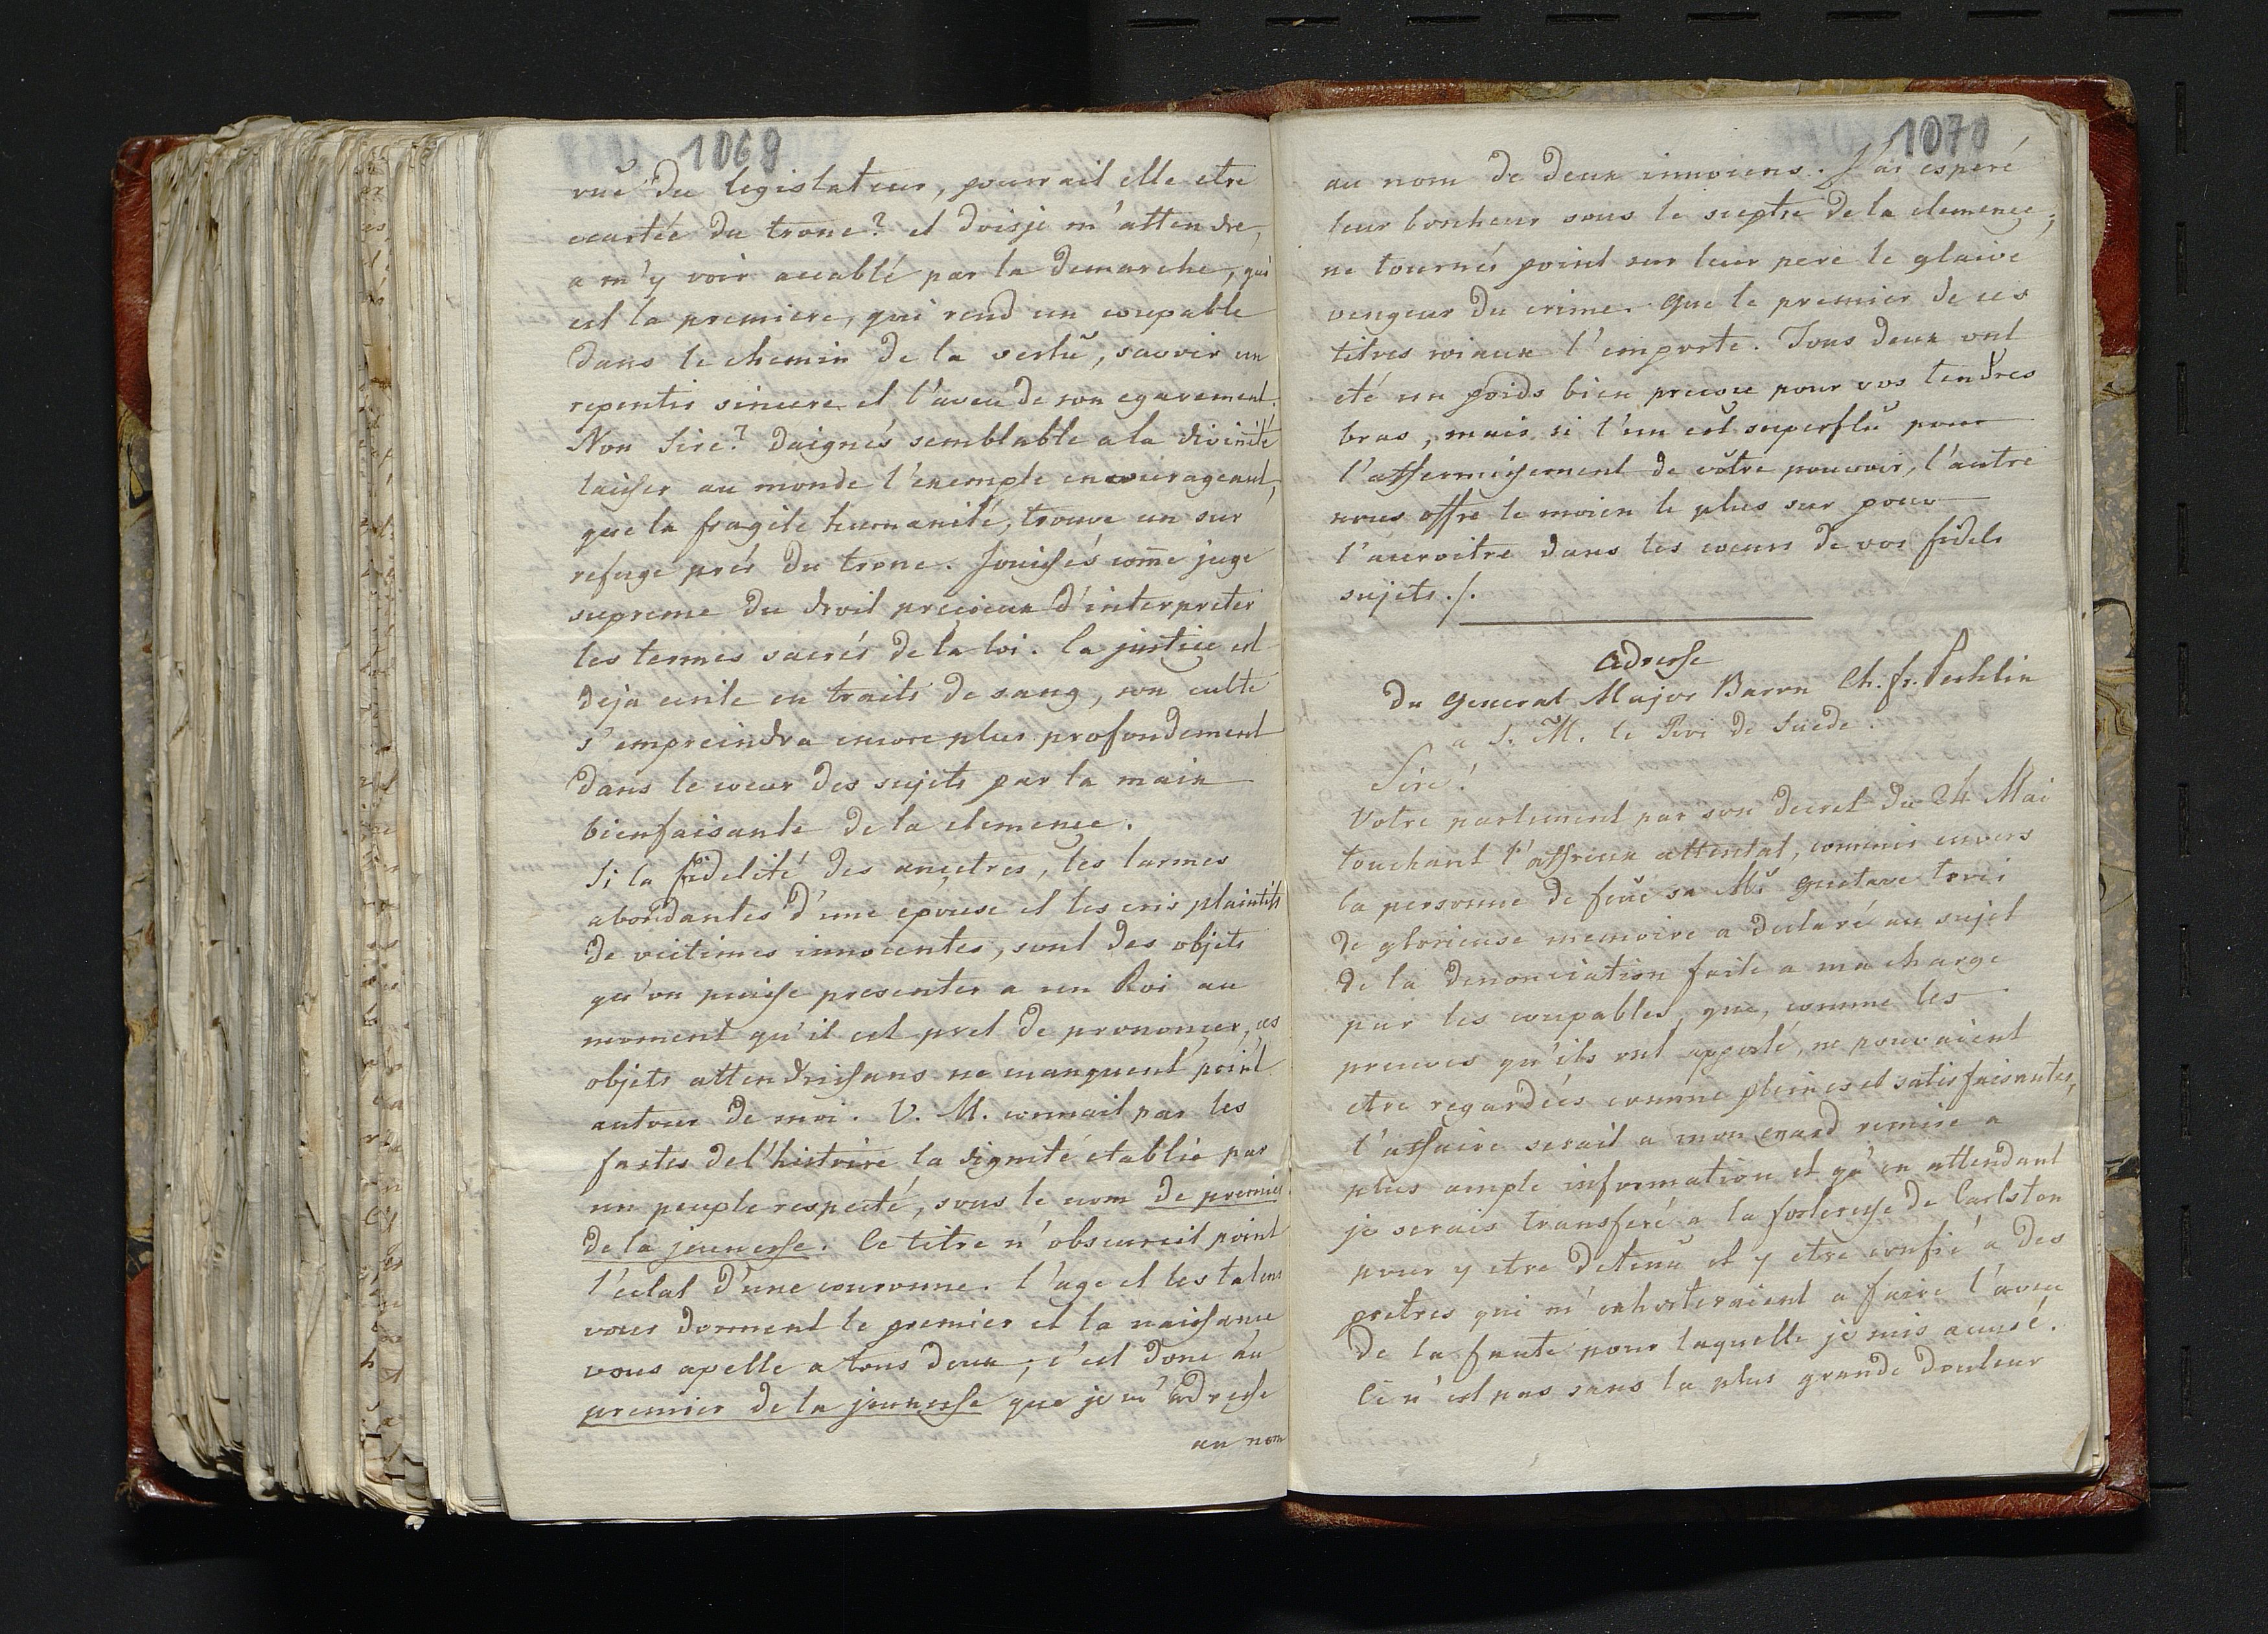 1069
vuë du legislateur, pourrait elle etre
ecartée du trone? et doisje m'attendre,
a m'y voir accablé par la demarche, qui
est la premiere, qui rend un coupable
dans le chemin de la vertŭ, savoir un
repentir sincere et l'aveu de son egarement.
Non Sire? daignés semblable a la divinité
laisser au monde l'exemple encourageant,
que la fragile humanité, trouve un sur
refuge prés du trone. Jouissés com̄e juge
supreme du droit precieux d'interpreter
les termes sacrés de la loi. la justice est
deja ecrite en traits de sang, son culte
s'empreindra encore plus profondement
dans le coeur des sujets par la main
bienfaisante de la clemençe.
Si la fidelité des ancetres, les larmes
abondantes d'une epouse et les cris plaintifs
de victimes innocentes, sont des objets
qu'on puisse presenter a un Roi au
moment qu'il est pret de prononçer, ces
objets attendrissans ne manquent point
autour de moi. V. M. connait par les
fastes de l'histoire la dignité etablie par
un peuple respecté, sous le nom de premier
de la jeunesse. Ce titre n'obscurcit point
l'eclat d'une couronne. l'age et les talens
vous donnent le premier et la naissance
vous apelle a tous deux; c'est donc au
premier de la jeunesse que je m'adresse
au nom
1070
au nom de deux innoçens. J'ai esperé
leur bonheur sous le sceptre de la clemençe;
ne tournés point sur leur pere le glaive
vengeur du crime. Que le premier de ces
titres roiaux l'emporte. Tous deux ont
eté un poids bien precoce pour vos tendres
bras, mais si l'un est superflŭ pour
l'affermissement de vôtre pouvoir, l'autre
vous offre le moien le plus sur pour
l'accroitre dans les coeurs de vos fidels
sujets ./.
Adresse
du General Major Baron Ch. fr. Pechlin
a S. M. le Roi de Suede.
Sire!
Votre parlement par son decret du 24 Mai
touchant l'affreux attentat, commis envers
la personne de feuë sa Mté Gustave trois
de glorieuse memoire a declaré au sujet
de la denonciation faite a ma charge
par les coupables, que, comme les
preuves qu'ils ont apporté, ne pouvaient
etre regardées comme pleines et satisfaisantes,
l'affaire serait a mon egard remise a
plus ample information et qu'en attendant
je serais transferé a la forteresse de Carlsten
pour y etre detenŭ et y etre confié a des
pretres qui m'exhorteraient a faire l'aveu
de la faute pour laquelle je suis accusé.
Ce n'est pas sans la plus grande douleur